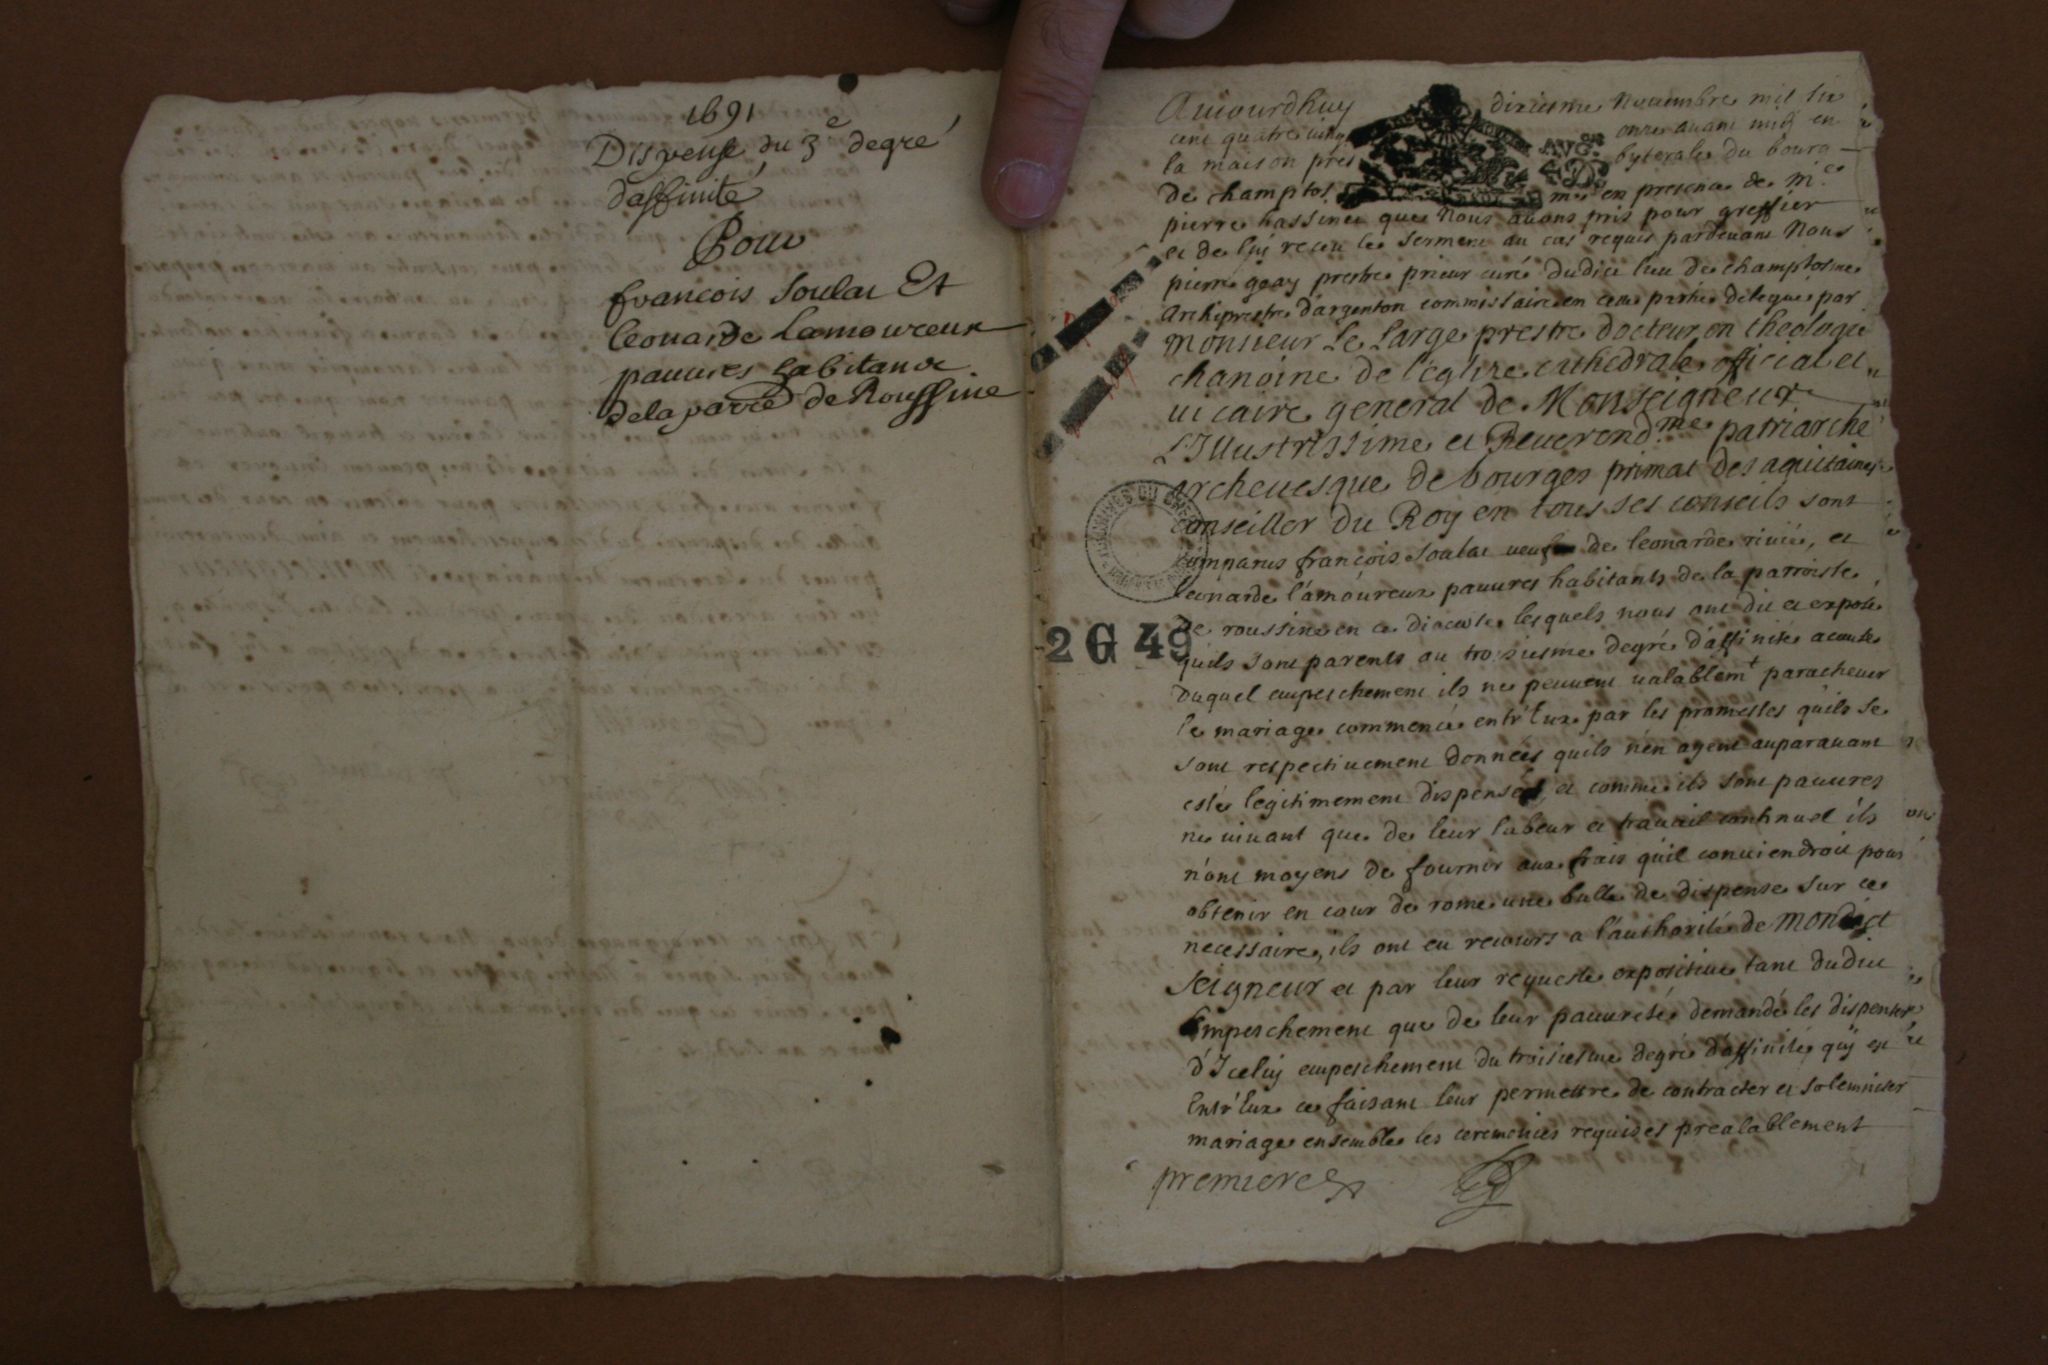 1691
Dispense du 3e degré
d'affinité
Pour
françois Soulat Et
Leonarde Lamoureux
pauures habitans
de la parre de Rouffine
Aujourdhuy dixiesme Nouembre mil six
cent quatre ving onze auant midy en
la maison pres byterale du bourg
de champtos me en presence de Me
pierre hassinet que Nous auons pris pour greffier
et de luy receu le serment au cas requis pardeuant Nous
pierre geay prestre prieur curé dudict lieu de champtosme
Archiprestre d'argenton commissaire en cette partie delegué par
Monsieur Le Large prestre docteur en theologie
chanoine de l'eglise cathedrale official et
uicaire general de Monseigneur
L'Illustrissime et Reuerendme patriarche
archeuesque de bourges primat des aquitaines
conseiller du Roy en tous ses conseils sont
comparus françois soulat ueuf de leonarde riuie, et
leonarde l'amoureux pauures habitants de la parroisse
de roussine en ce diocese lesquels nous ont dit et exposé
quils sont parents au troisiesme degré d'affinité a cause
duquel empeschement ils ne peuuent ualablemt paracheuer
le mariage commencé entr'Eux par les promesses quils se
sont respectiuement données quils n'en ayent auparauant
esté legitimement dispensés, et comme ils sont pauures
ne uiuant que de leur labeur et trauail continuel ils
n'ont moyens de fournir aux frais qu'il conuiendroit pour
obtenir en cour de rome une bulle de dispense sur ce
necessaire, ils ont eu recours a l'authorité de MONdict
SEIGNEUR et par leur requeste expositiue tant dudict
Empeschement que de leur pauureté demandé les dispenser
d'Iceluy empeschement du troisiesme degré d'affinité qui est
Entr'Eux ce faisant leur permettre de contracter et solemniser
mariage ensemble les ceremonies requises prealablement
premiere
2 G 49